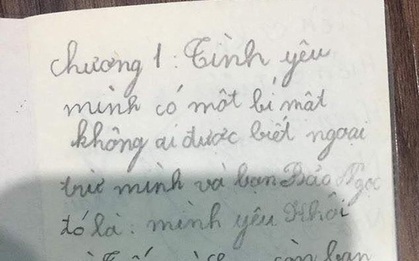 Chương 1: Tình yêu
mình có một bí mật
không ai được biết ngoại
trừ mình và bạn Bảo Ngọc
đó là: mình yêu Khôi
còn bạn